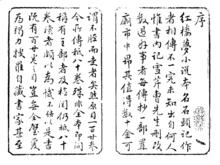 序
紅樓夢小說本名石頭記作
者相傳不一究未知出自何人
惟書內記雪芹曹先生刪改
數過好事者每傳抄一部置
廟市中昂其值得數十金可
謂不脛而走者矣然原目一百廿卷
今所傳祇八十卷殊非全本即間
稱有全部者及檢閱仍祇八十
卷讀者頗以為憾不佞以是書
既有百廿卷之目豈無全璧爰
為竭力搜羅自藏書家甚至